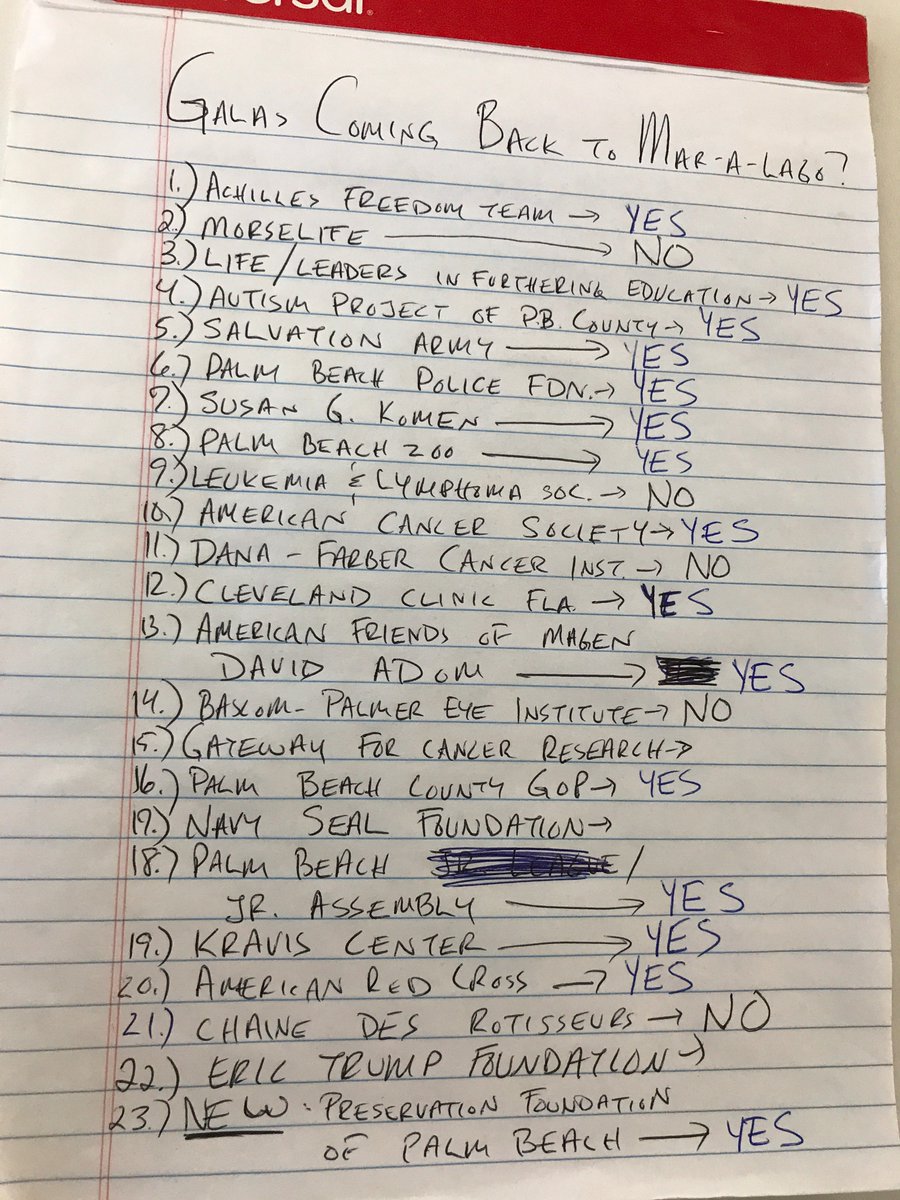 ersal.
GALAS COMING BACK TO MAR-A-LAGO?
1.) ACHILLES FREEDOM TEAM → YES
2.) MORSELIFE → NO
3.) LIFE/LEADERS IN FURTHERING EDUCATION → YES
4.) AUTISM PROJECT OF P.B. COUNTY → YES
5.) SALVATION ARMY → YES
6.) PALM BEACH POLICE FDN. → YES
7.) SUSAN G. KOMEN → YES
8.) PALM BEACH ZOO → YES
9.) LEUKEMIA & LYMPHOMA SOC. → NO
10.) AMERICAN CANCER SOCIETY → YES
11.) DANA-FARBER CANCER INST. → NO
12.) CLEVELAND CLINIC FLA. → YES
13.) AMERICAN FRIENDS OF MAGEN
DAVID ADOM → YES
14.) BASCOM-PALMER EYE INSTITUTE → NO
15.) GATEWAY FOR CANCER RESEARCH →
16.) PALM BEACH COUNTY GOP → YES
17.) NAVY SEAL FOUNDATION →
18.) PALM BEACH JR. LEAGUE/
JR. ASSEMBLY → YES
19.) KRAVIS CENTER → YES
20.) AMERICAN RED CROSS → YES
21.) CHAINE DES ROTISSEURS → NO
22.) ERIC TRUMP FOUNDATION →
23.) NEW: PRESERVATION FOUNDATION
OF PALM BEACH → YES